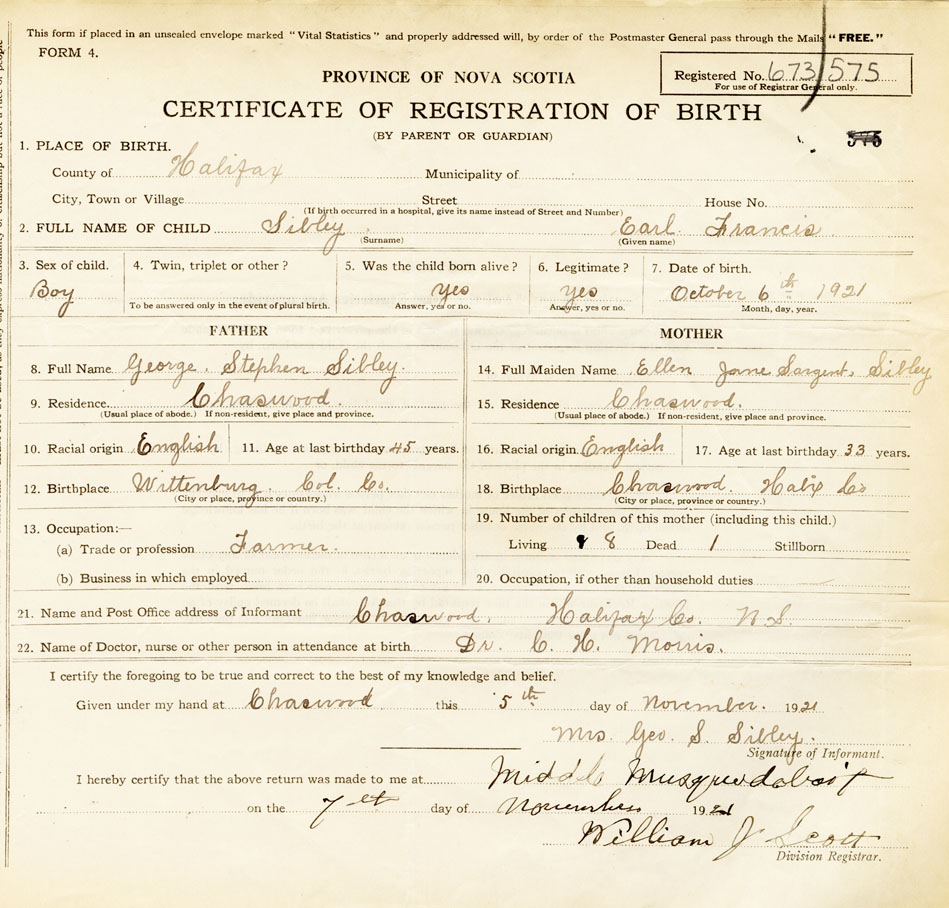 This form if placed in an unsealed envelope marked "Vital Statistics" and properly addressed will, by order of the Postmaster General pass through the Mails "FREE."
FORM 4.
PROVINCE OF NOVA SCOTIA
Registered No. 673 575
For use of Registrar General only.
CERTIFICATE OF REGISTRATION OF BIRTH
(BY PARENT OR GUARDIAN)
1. PLACE OF BIRTH.
County of Halifax Municipality of
City, Town or Village Street House No.
(If birth occurred in a hospital, give its name instead of Street and Number)
2. FULL NAME OF CHILD Sibley Earl Francis
(Surname) (Given name)
3. Sex of child. 4. Twin, triplet or other? 5. Was the child born alive? 6. Legitimate? 7. Date of birth.
Boy yes yes October 6th 1921
To be answered only in the event of plural birth. Answer, yes or no. Answer, yes or no. Month, day, year.
FATHER MOTHER
8. Full Name George. Stephen Sibley. 14. Full Maiden Name Ellen Jane Sargent. Sibley
9. Residence Chaswood. 15. Residence Chaswood.
(Usual place of abode.) If non-resident, give place and province. (Usual place of abode.) If non-resident, give place and province.
10. Racial origin English 11. Age at last birthday 45 years. 16. Racial origin English 17. Age at last birthday 33 years.
12. Birthplace Wittenburg. Col. Co. 18. Birthplace Chaswood. Halix Co
(City or place, province or country.) (City or place, province or country.)
13. Occupation:— 19. Number of children of this mother (including this child.)
(a) Trade or profession Farmer. Living 8 Dead 1 Stillborn
(b) Business in which employed 20. Occupation, if other than household duties
21. Name and Post Office address of Informant Chaswood, Halifax Co. N S.
22. Name of Doctor, nurse or other person in attendance at birth Dr. C. H. Morris.
I certify the foregoing to be true and correct to the best of my knowledge and belief.
Given under my hand at Chaswood this 5th day of November. 1921
Mrs. Geo. S. Sibley.
Signature of Informant.
I hereby certify that the above return was made to me at Middle Musquodoboit
on the 7th day of November 1921
William J Scott
Division Registrar.